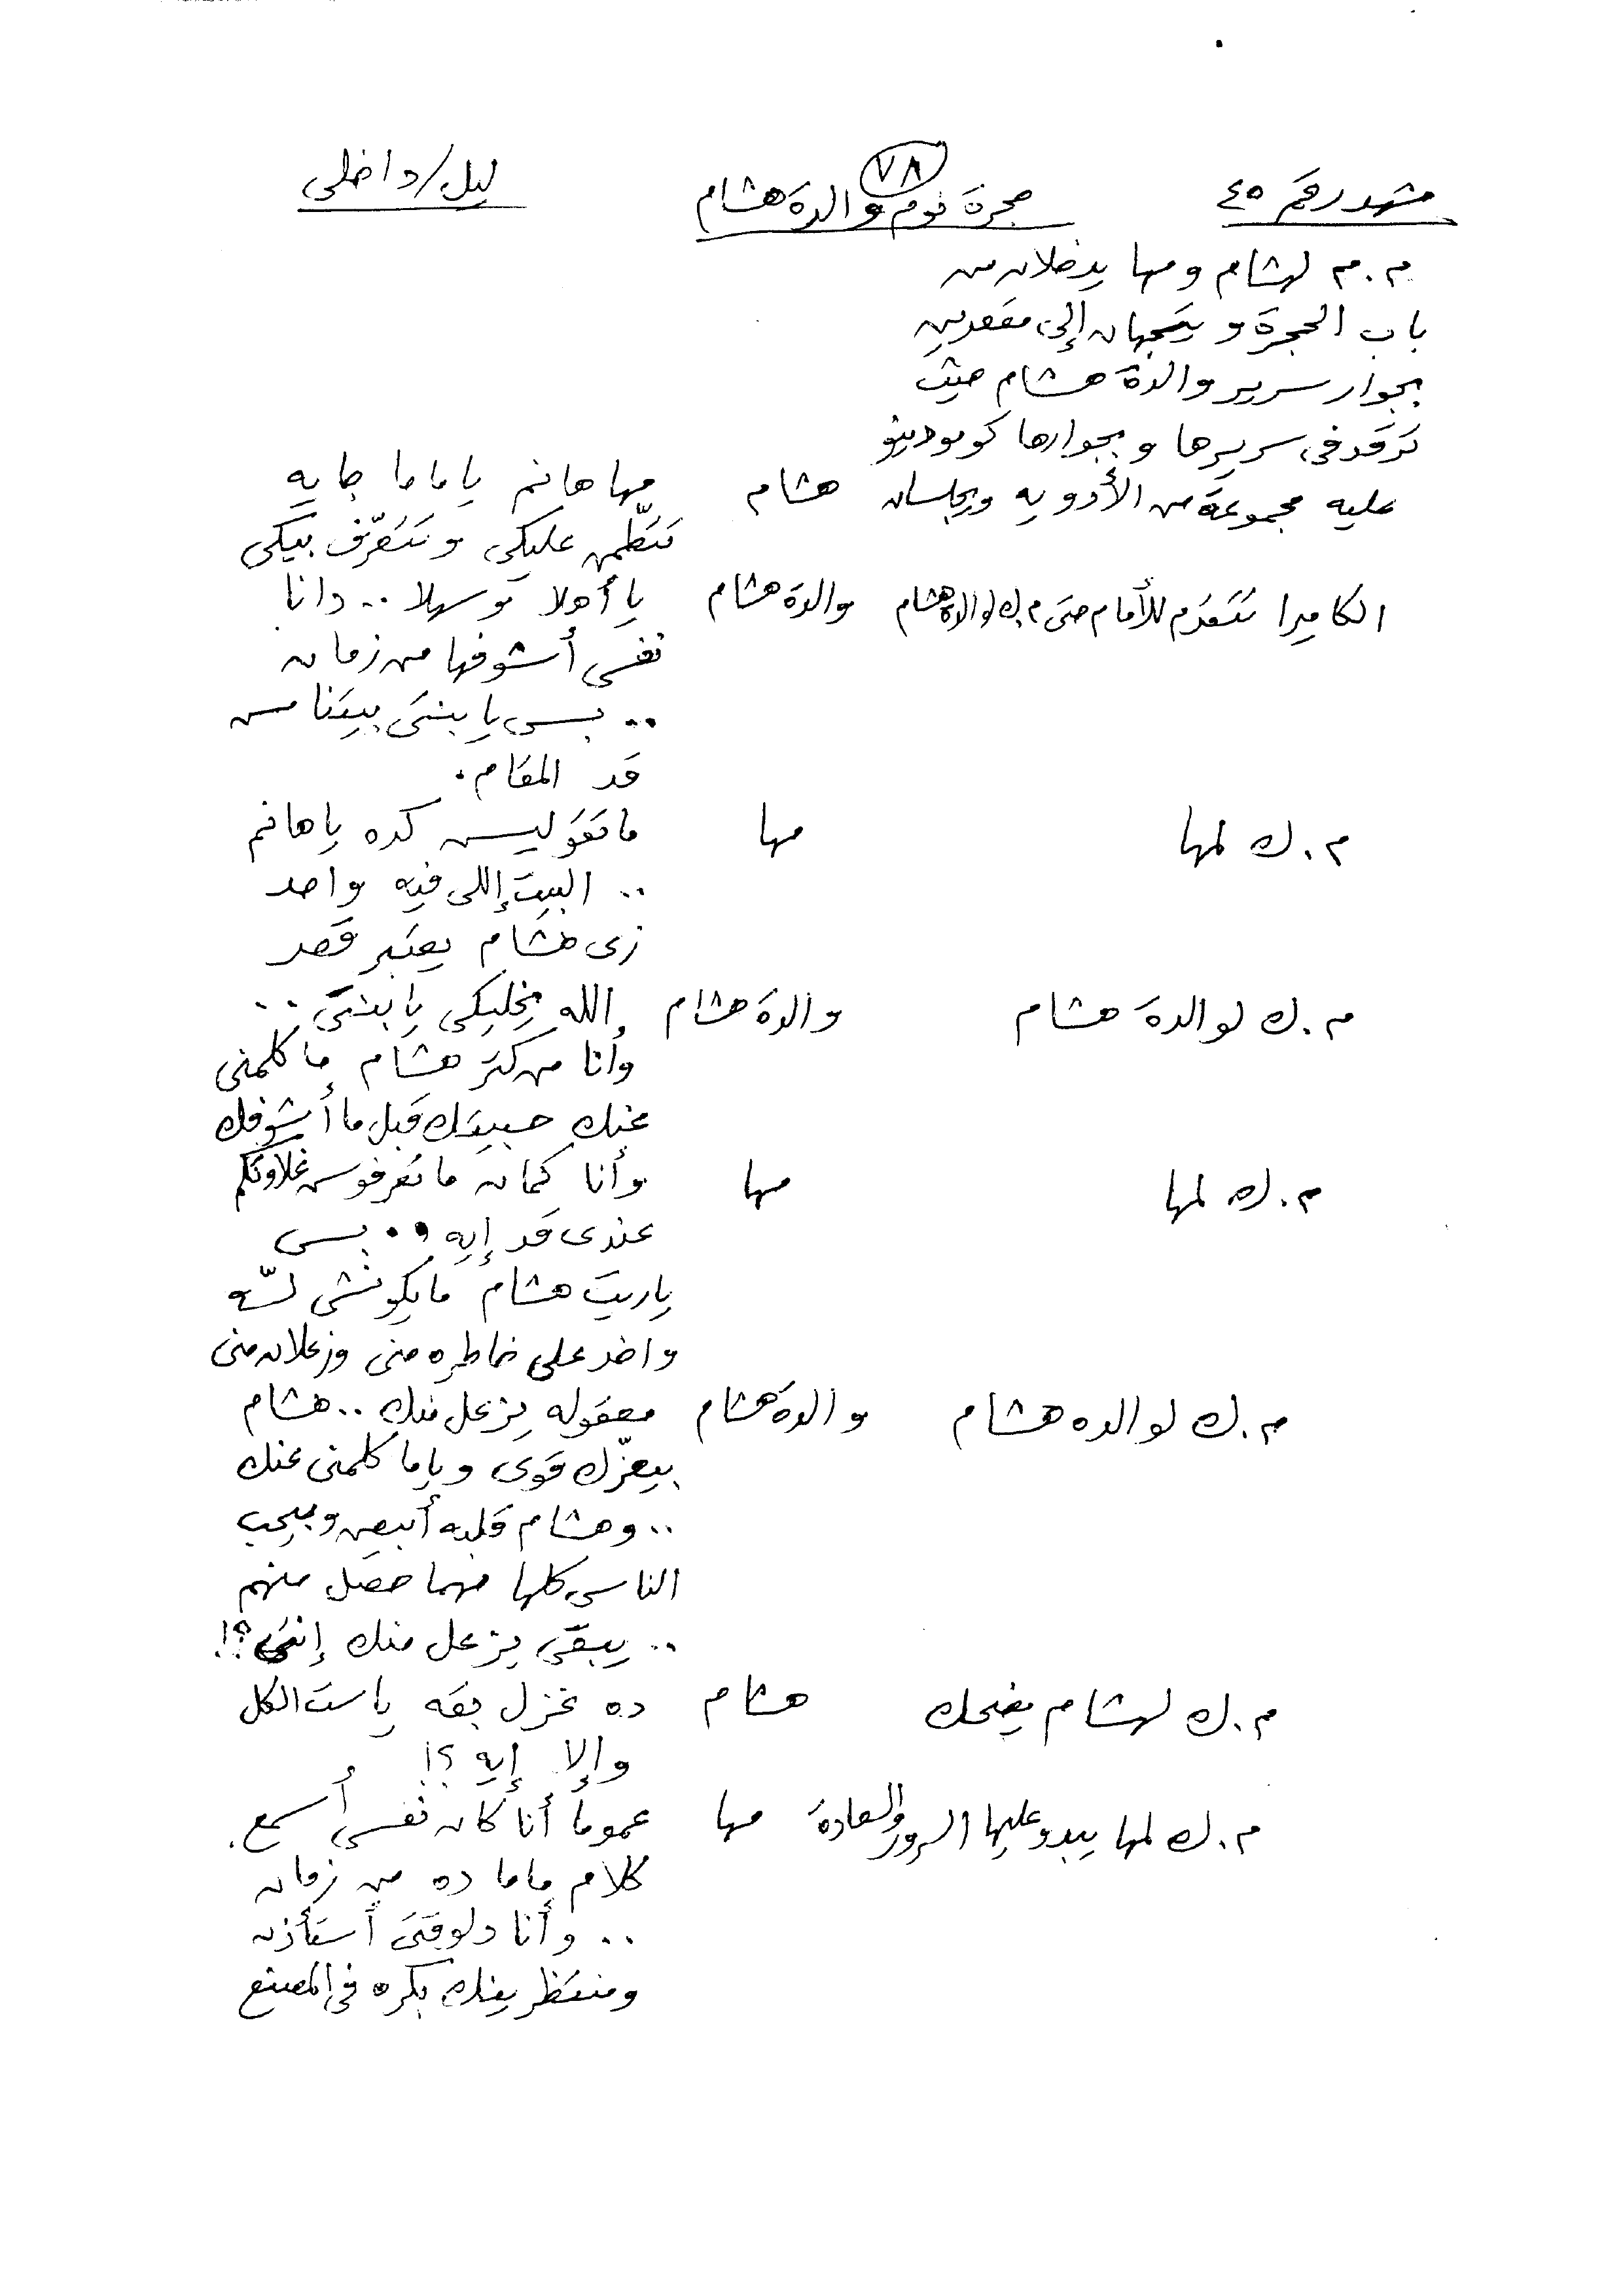 ٧٨
مشهد رقم ٤٥ حجرة نوم والدة هشام ليل/داخلى
م.م لهشام ومها يدخلان من
باب الحجرة ويتجهان إلى مقعدين
بجوار سرير والدة هشام حيث
ترقد فى سريرها وبجوارها كومودينو
عليه مجموعة من الأدويه ويجلسان هشام مها هانم ياماما جايه
تتطّمن عليكى وتتعرّف بيكى
الكاميرا تتقدم للأمام حتى م.ك لوالدة هشام والدة هشام ياأهلا وسهلا .. دانا
نفسى أشوفها من زمان
.. بس يابنتى بيتنا مش
قد المقام .
م.ك لمها مها ماتقوليش كده ياهانم
.. البيت إللى فيه واحد
زى هشام يعتبر قصر
م.ك لوالدة هشام والدة هشام الله يخليكى يابنتى ..
وأنا من كتر هشام ماكلمنى
عنك حبيتك قبل ماأشوفك
م.ك لمها مها وأنا كمان ماتعرفوش غلاوتكم
عندى قد إيه .. بس
ياريت هشام مايكونشى لسّه
واخد على خاطره منى وزعلان منى
م.ك لوالده هشام والدة هشام معقوله يزعل منك .. هشام
بيعزّك قوى وياما كلمنى عنك
.. وهشام قلبه أبيض وبيحب
الناس كلها مهما حصل منهم
.. يبقى يزعل منك إنتى ؟!
م.ك لهشام يضحك هشام ده غزل بقه ياست الكل
وإلا إيه ؟!
م.ك لمها يبدو عليها السرور والسعادة مها عموماً أنا كان نفسى أسمع
كلام ماما ده من زمان
.. وأنا دلوقتى أستأذن
ومنتظرينك بكره فى المصنع